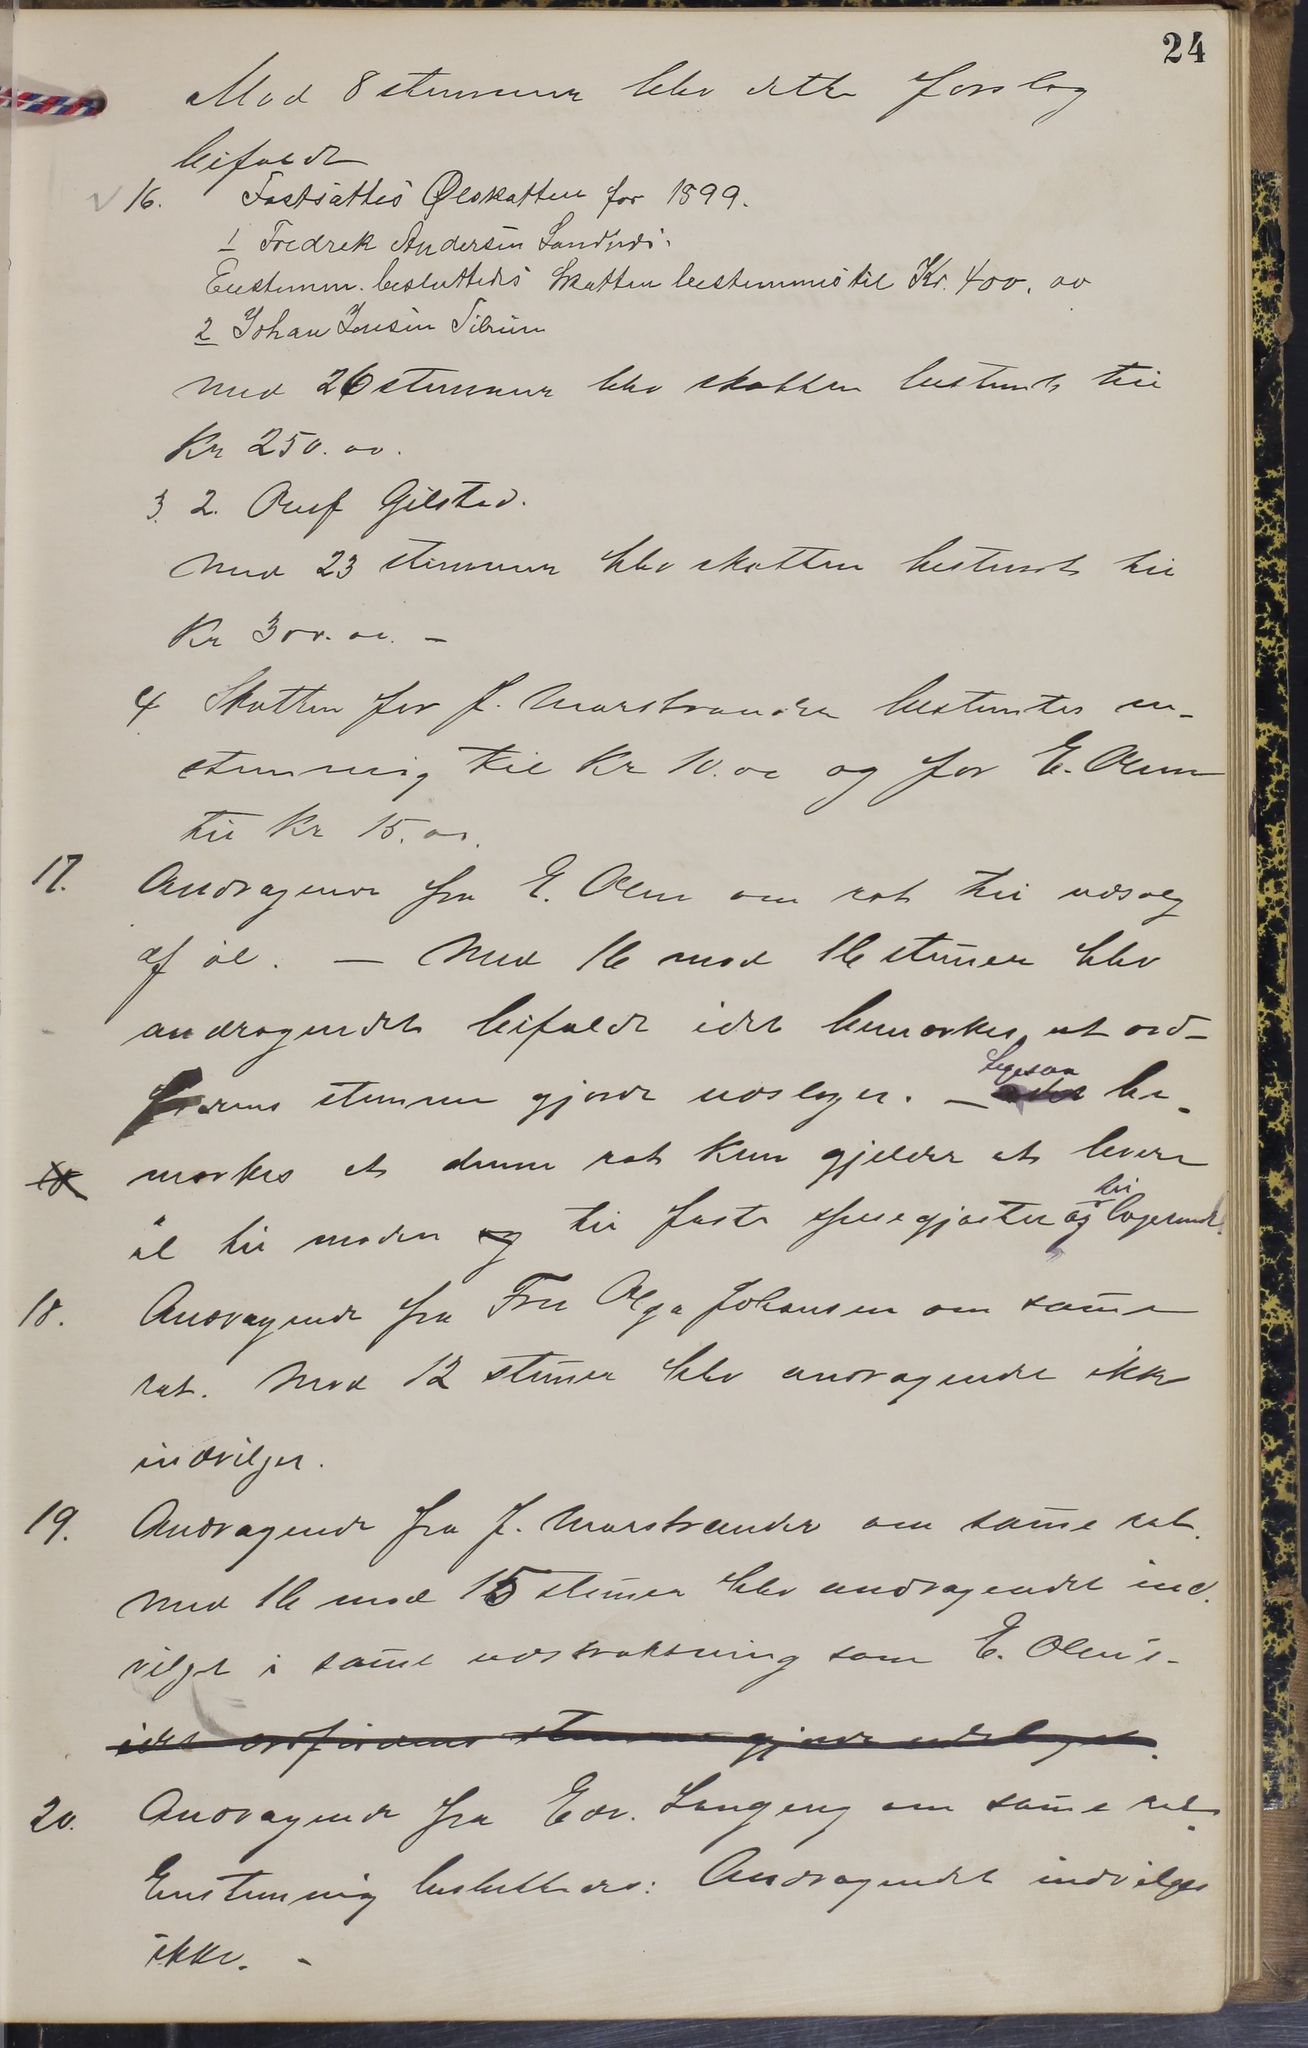 24
Mod 8 stemmer blev dette forslag
bifaldt
16. Fastsattes Ølskatten for 1899.
1 Fredrek Andersen Sandnes.
Eenstemm. besluttedes Skatten bestemmes til Kr. 400,00
2 Johan Jensen Tilrem
Med 26 stemmer blev skatten bestemt til
Kr 250.00.
3. 2. Oluf Gilstad.
Med 23 stemmer blev skatten bestemt til
Kr 300.00. —
4 Skatten for J. Marstrander bestemtes en-
stemmig til Kr 10.00 og for E. Olsen
til Kr 15.00.
17. Andragende fra E. Olsen om ret til udsalg
af øl. — Med 16 mod 16 stem̄er blev
andragendet bifaldt idet bemærkes at ord-
førerens stemme gjorde udslaget. — Ligesaa be-
mærkes at denne ret kun gjelder at levere
øl til maden og til faste spisegjæster og til logerende.
18. Andragende fra Fru Olga Johansen om sam̄e
ret. Mod 12 stem̄er blev andragendet ikke
indvilget.
19. Andragende fra J. Marstrander om sam̄e ret.
Med 16 mod 15 stem̄er blev andragendet ind-
vilget i sam̄e udstrækning som E. Olsen's -
idet ordførerens stemme gjorde udslaget.
20. Andragende fra Edv. Langeng om sam̄e ret.
Enstemmig besluttedes: Andragendet indvilges
ikke. -